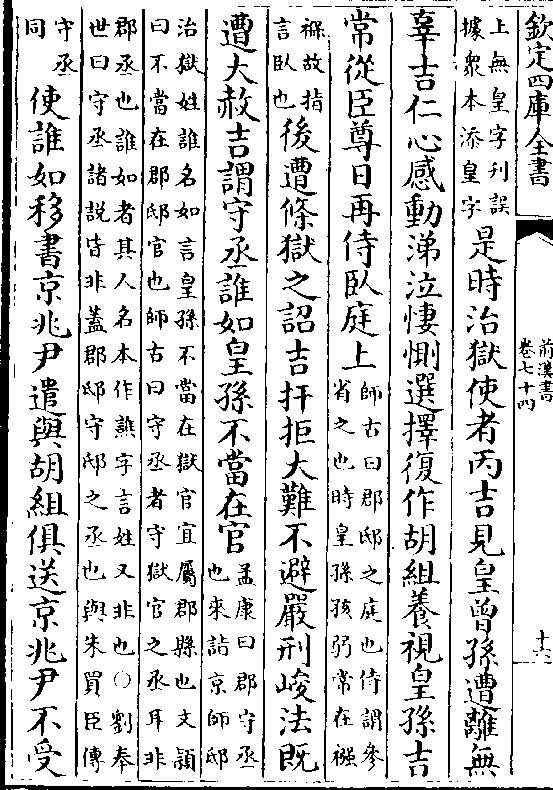 欽定四庫全書
前漢書
卷七十四
十六
上無皇字刋誤
據衆本添皇字
是時治獄使者丙吉見皇曾孫遭離無
辜吉仁心感動涕泣悽惻選擇復作胡組養視皇孫吉
常從臣尊日再侍臥庭上
師古曰郡邸之庭也侍謂參
省之也時皇孫孩弱常在襁
褓故指
言臥也
後遭條獄之詔吉扞拒大難不避嚴刑峻法既
遭大赦吉謂守丞誰如皇孫不當在官
孟康曰郡守丞
也來詣京師邸
治獄姓誰名如言皇孫不當在獄官宜屬郡縣也文頴
曰不當在郡邸官也師古曰守丞者守獄官之丞耳非
郡丞也誰如者其人名本作譙字言姓又非也〇劉奉
世曰守丞諸説皆非蓋郡邸守邸之丞也與朱買臣傳
守丞
同
使誰如移書京兆尹遣與胡組俱送京兆尹不受